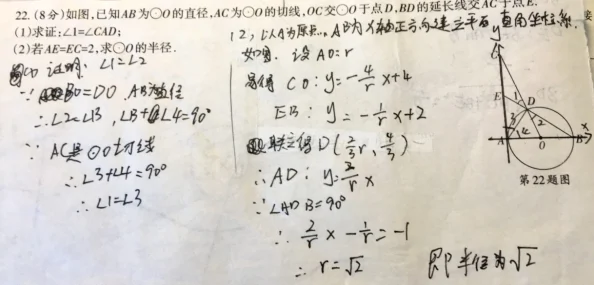 22.(8分)如图,已知AB为⊙O的直径,AC为⊙O的切线,OC交⊙O于点D,BD的延长线交AC于点E.
(1)求证:∠1=∠CAD;
(2)若AE=EC=2,求⊙O的半径.
证明: ∠1=∠2
∵ BO=DO AB为直径
∴∠2=∠B, ∠B+∠4=90°
∵ AC是⊙O切线
∴∠3+∠4=90°
∴∠1=∠3
(2, 以A为原点, AB为X轴正方向建立平面直角坐标系.
如图. 设AO:r
易得 CO: y=-4/r x+4
EB: y=-1/r x+2
联立得D(2/3 r, 4/3)
∴AD: y=2/r x
∵∠ADB=90°
∴ 2/r × -1/r = -1
∴ r=√2 即半径为√2
y
E 1 D
3 2
A 4 O B x
第22题图